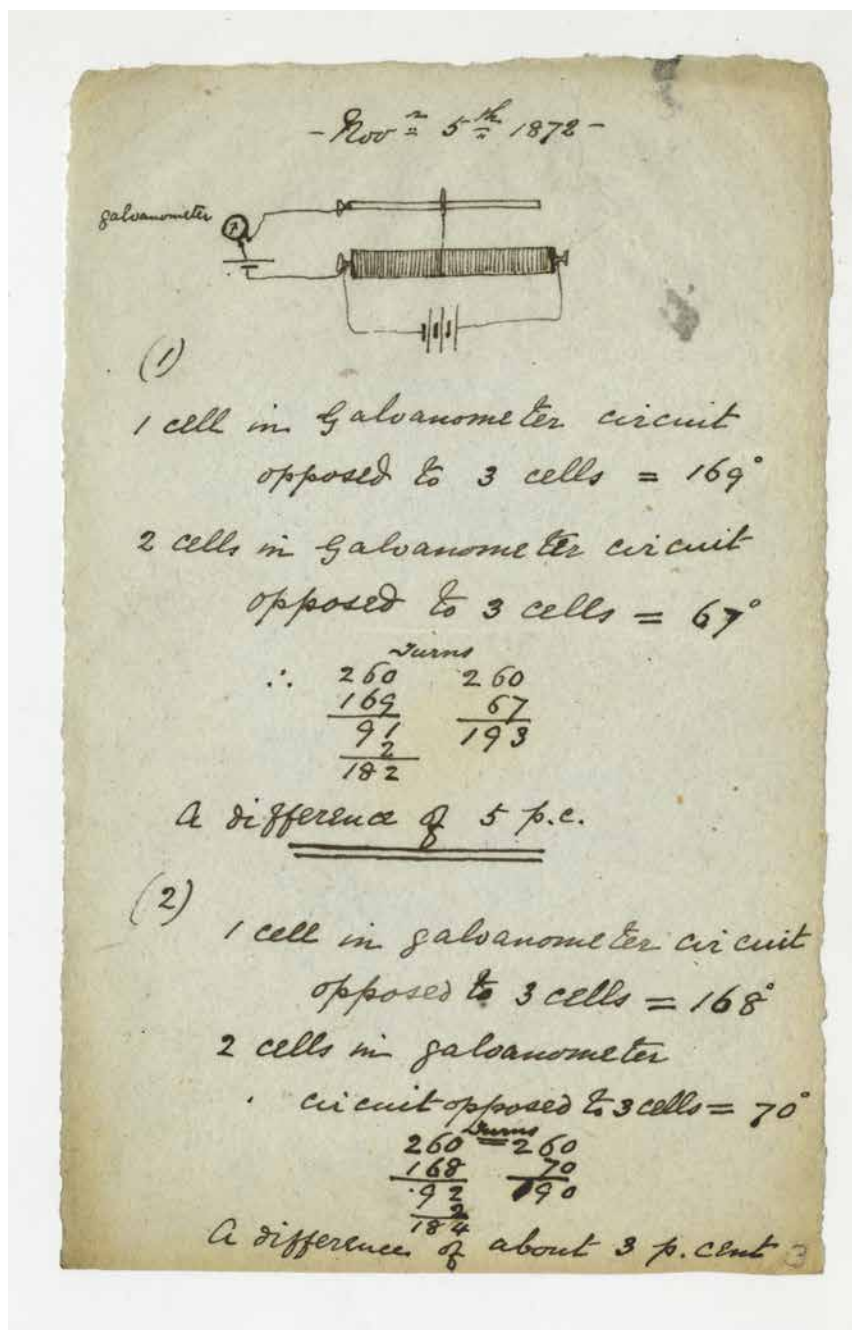 - Novr 5th 1872 -
galvanometer
(1)
1 cell in Galvanometer circuit
opposed to 3 cells = 169°
2 cells in Galvanometer circuit
opposed to 3 cells = 67°
Turns
∴ 260 260
169 67
91 193
2
182
A difference of 5 p.c.
(2)
1 cell in galvanometer circuit
opposed to 3 cells = 168°
2 cells in galvanometer
circuit opposed to 3 cells = 70°
Turns
260 260
168 70
92 190
2
184
A difference of about 3 p. cent
3